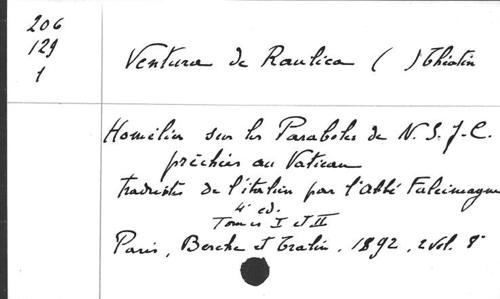 206
129
1
Ventura de Raulica ( ) Théatin
Homélies sur les Paraboles de N. S. J-C.
prêchées au Vatican
traduites de l'italien par l'Abbé Falcimagne
4e ed.
Tomes I et II
Paris, Berche et Tralin, 1892, 2 vol. 8°